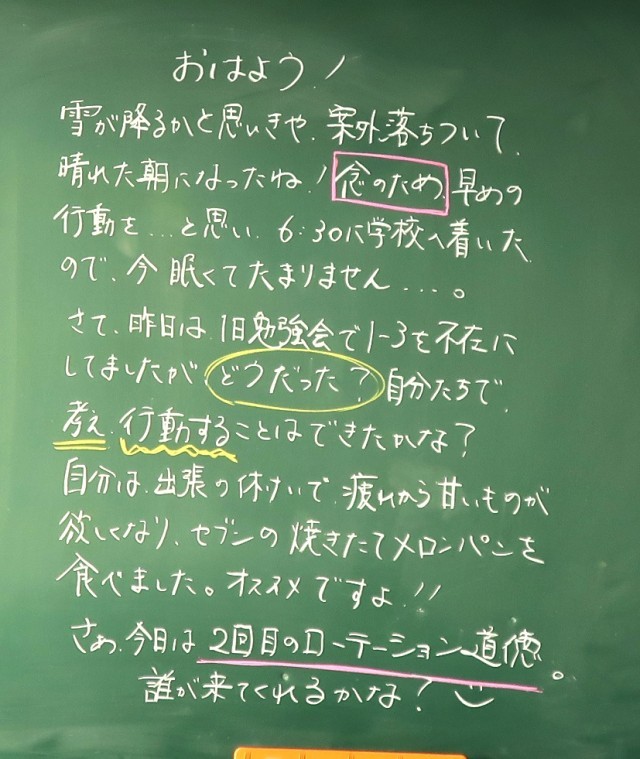 おはよう!
雪が降るかと思いきや、案外落ちついて、
晴れた朝になったね!念のため、早めの
行動を...と思い、6:30に学校へ着いた
ので、今眠くてたまりません....。
さて、昨日は、1日勉強会で1-3を不在に
してましたが、どうだった?自分たちで、
考え、行動することはできたかな?
自分は、出張の休けいで、疲れから甘いものが
欲しくなり、セブンの焼きたてメロンパンを
食べました。オススメですよ!!
さぁ、今日は2回目のローテーション道徳。
誰が来てくれるかな?